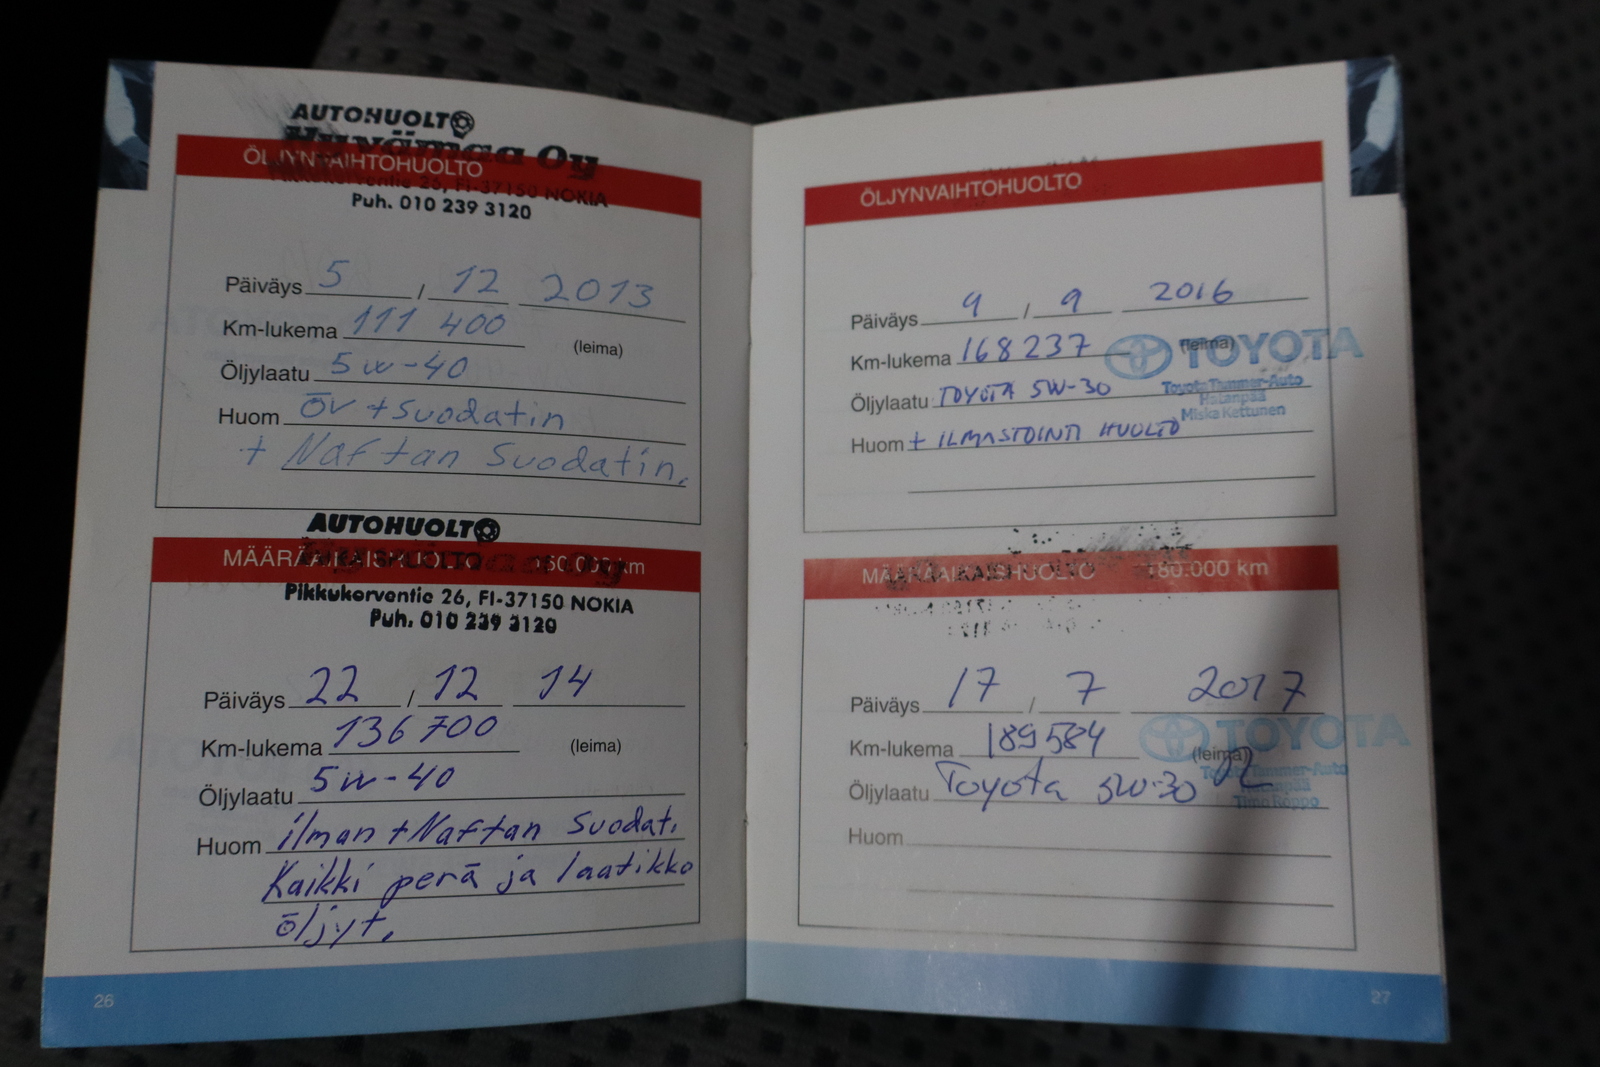 AUTOHUOLTO
Huvämaa Oy
ÖLJYNVAIHTOHUOLTO
Pikkukorventie 26, FI-37150 NOKIA
Puh. 010 239 3120
Päiväys 5 / 12 2013
Km-lukema 111 400
(leima)
Öljylaatu 5w-40
Huom ÖV + Suodatin
+ Naftan Suodatin.
AUTOHUOLTO
MÄÄRÄAIKAISHUOLTO 150.000 km
Pikkukorventie 26, FI-37150 NOKIA
Puh. 010 239 3120
Päiväys 22 / 12 14
Km-lukema 136 700
(leima)
Öljylaatu 5w-40
Huom ilman + Naftan Suodat.
Kaikki perä ja laatikko
öljyt.
26
ÖLJYNVAIHTOHUOLTO
Päiväys 9 / 9 2016
Km-lukema 168237
(leima)
TOYOTA
Öljylaatu TOYOTA 5W-30
Toyota Tammer-Auto
Hatanpää
Miska Kettunen
Huom + ILMASTOINTI HUOLTO
MÄÄRÄAIKAISHUOLTO 180.000 km
Päiväys 17 / 7 2017
Km-lukema 189584
(leima)
TOYOTA
Öljylaatu Toyota 5W-30
Toyota Tammer-Auto
Hatanpää
Timo Roppo
Huom
27